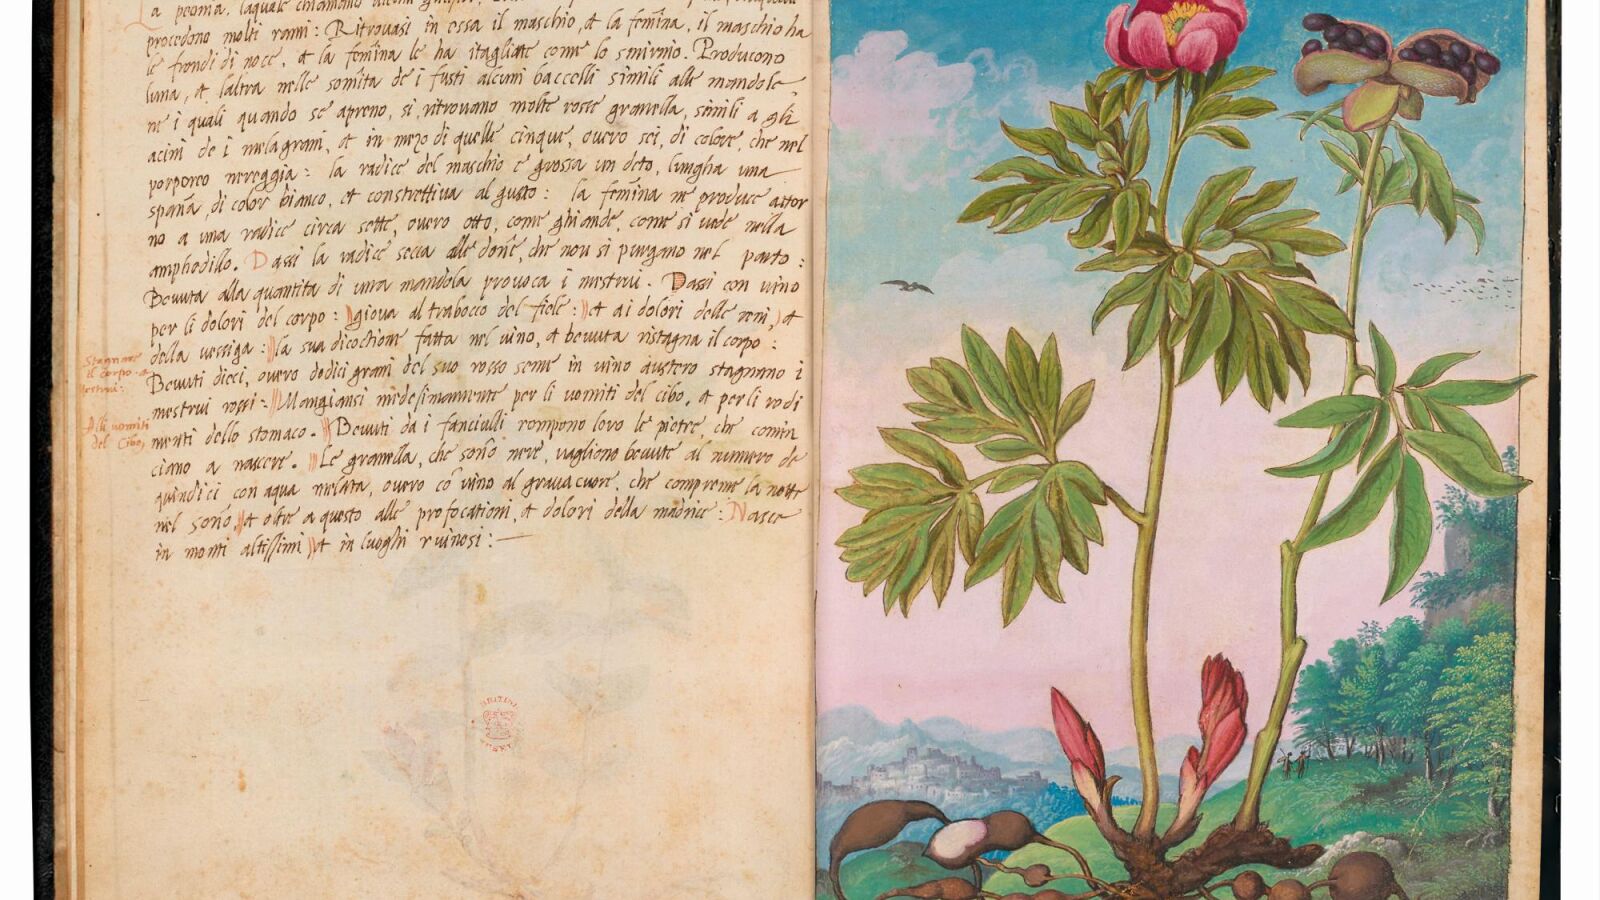 La peonia, laquale chiamano alcuni
procedono molti rami: Ritrovasi in essa il maschio, et la femina, il maschio ha
le frondi di noce, et la femina le ha itagliate come lo smirnio. Producono
luna, et laltra nelle somita de i fusti alcuni baccelli simili alle mandole,
ne i quali quando se apreno, si ritrovano molte rosse granella, simili a gli
acini de i melagrani, et in mezo di quelle cinque, overo sei, di colore, che nel
porporeo nereggia: la radice del maschio è grossa un deto, lungha una
spana, di color bianco, et constrettiva al gusto: la femina ne produce attor
no a una radice circa sette, overo otto, come ghiande, come si vede nella
amphodillo. Dassi la radice secca alle done, che non si purgano nel parto:
Bevuta alla quantita di una mandola provoca i mestrui. Dassi con vino
per li dolori del corpo: giova al trabocco del fiele: et ai dolori delle reni, et
della vessiga: la sua dicoctione fatta nel vino, et bevuta ristagna il corpo:
Bevuti dieci, overo dodici grani del suo rosso seme in vino austero stagnano i
mestrui rossi: Mangiansi medesimamente per li vomiti del cibo, et per li rodi
menti dello stomaco. Bevuti da i fanciulli rompono loro le pietre, che comin
ciano a nascere. Le granella, che sono nere, vagliono bevute al numero de
quindici con aqua melata, overo cō vino al gravacuore, che compreme la notte
nel sono, et oltre a questo alle profocationi, et dolori della madrice: Nasce
in monti altissimi, et in luoghi ruinosi:
Stagnare
il corpo. et
mestrui:
Alli vomiti
del Cibo,